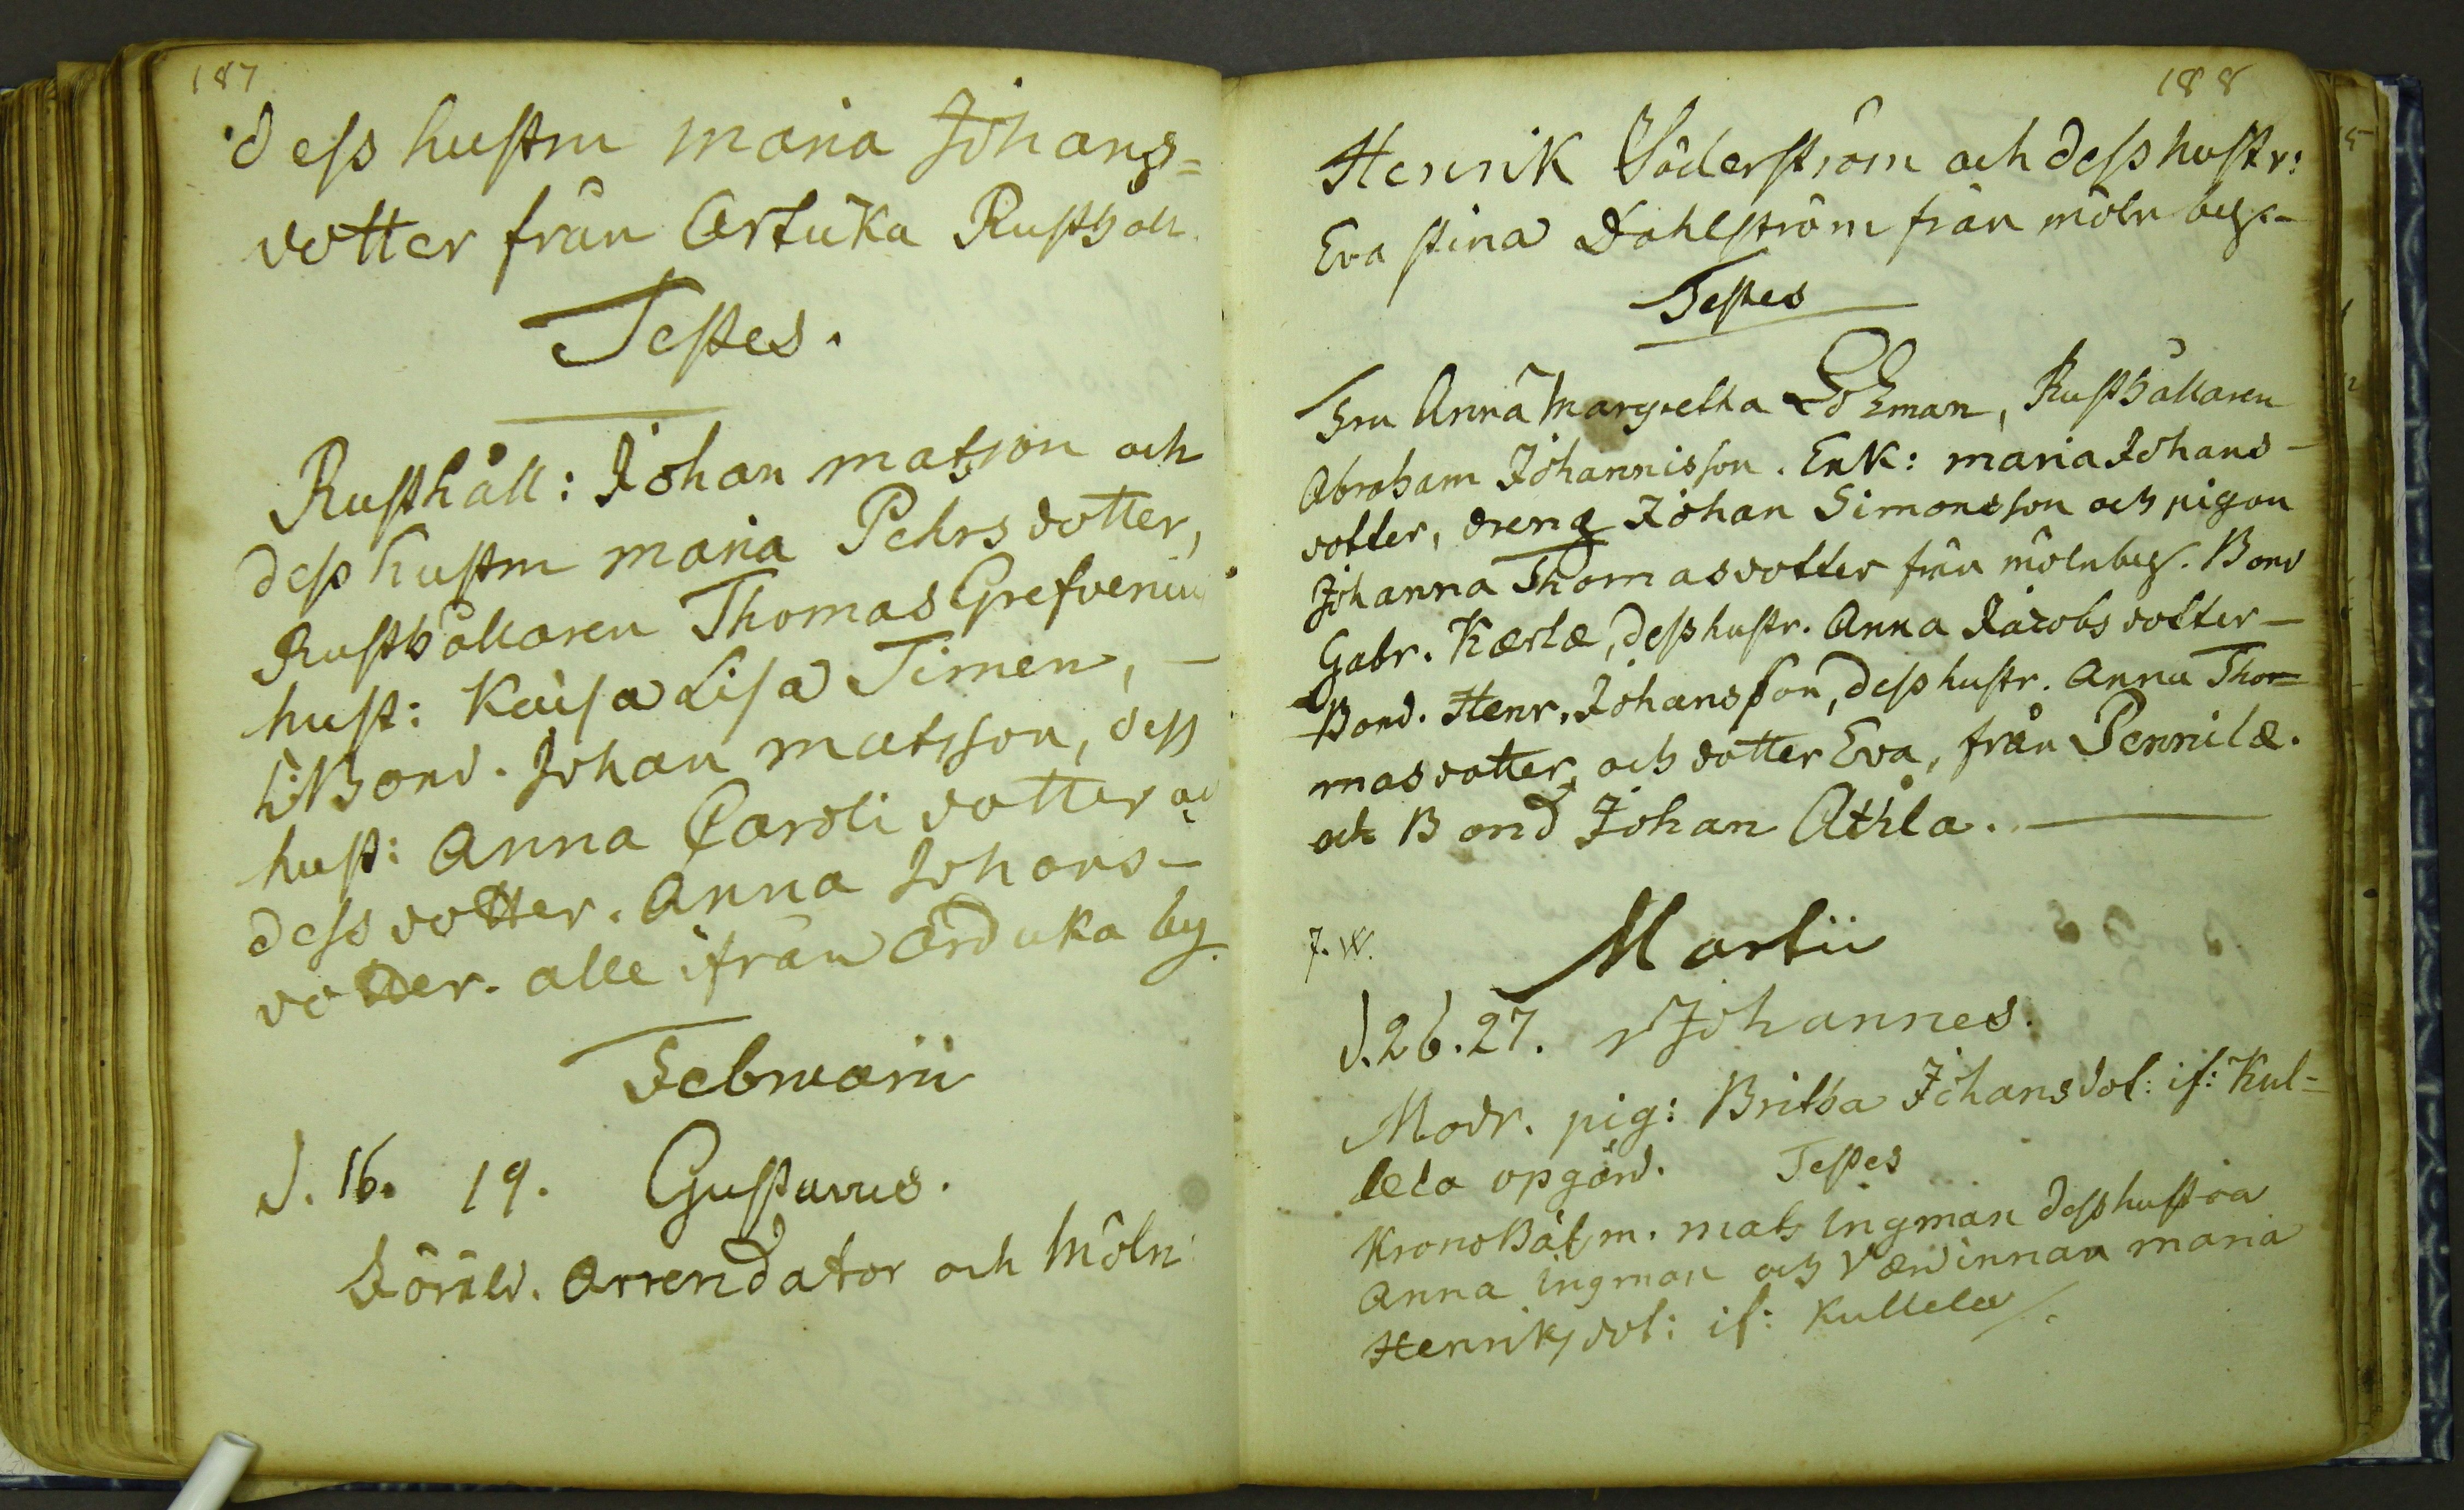 187
dess hustru maria Johans=
dotter från Artuka Rusthåll.
Testes.
Rusthåll: Johan matsson och
dess hustru maria Pehrsdotter,
Rusthållaren Thomas Grefvenius
hust: Kaisa Lisa Timen, –
Bond. Johan matsson, dess
hust: Anna Caroli dotter och
dess dotter. Anna Johans-
dotter. alle ifrån Arduka by.
Februarii
d. 16. 19. Gustavus.
Föräld. Arrendator och Möln:
188
Henrik Söderström och dess hustr:
Eva Stina Dahlström från mölnbey. –
Testes
Fru Anna Margretha Lohman, Rusthållaren
Abraham Johannisson. Enk: maria Johans-
dotter, dreng Johan Simonsson och pigan
Johanna Thomasdotter från mölnbey. Bond
Gabr. Kærlæ, dess hustr. Anna Jacobsdotter –
Bond. Henr. Johansson, dess hustr. Anna Tho=
masdotter, och dotter Eva, från Pennilæ.
och Bond Johan Athla.
7. W. Martii
d. 26. 27. Johannes.
Modr. pig: Britha Johansdot: if: Kul=
lela opgård. Testes
KronoBåtm. mats ingman dess hustra
Anna ingman och Værdinnan maria
Henriksdot: if: Kullela